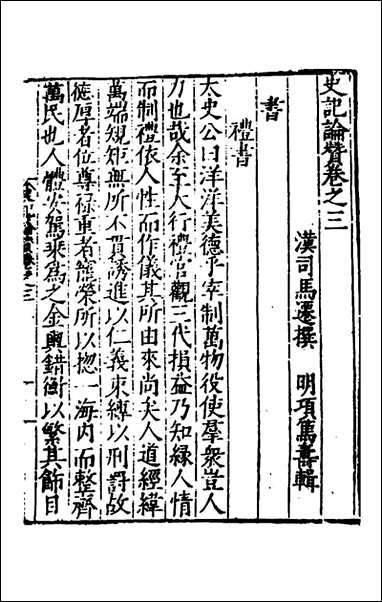 史記論贊卷之三
漢司馬遷撰　明項篤壽輯
書
禮書
太史公曰洋洋美德乎宰制萬物役使羣衆豈人
力也哉余至大行禮官觀三代損益乃知緣人情
而制禮依人性而作儀其所由來尚矣人道經緯
萬端規矩無所不貫誘進以仁義束縛以刑罰故
德厚者位尊祿重者寵榮所以揔一海内而整齊
萬民也人體安駕乘爲之金輿錯衡以繁其飾目